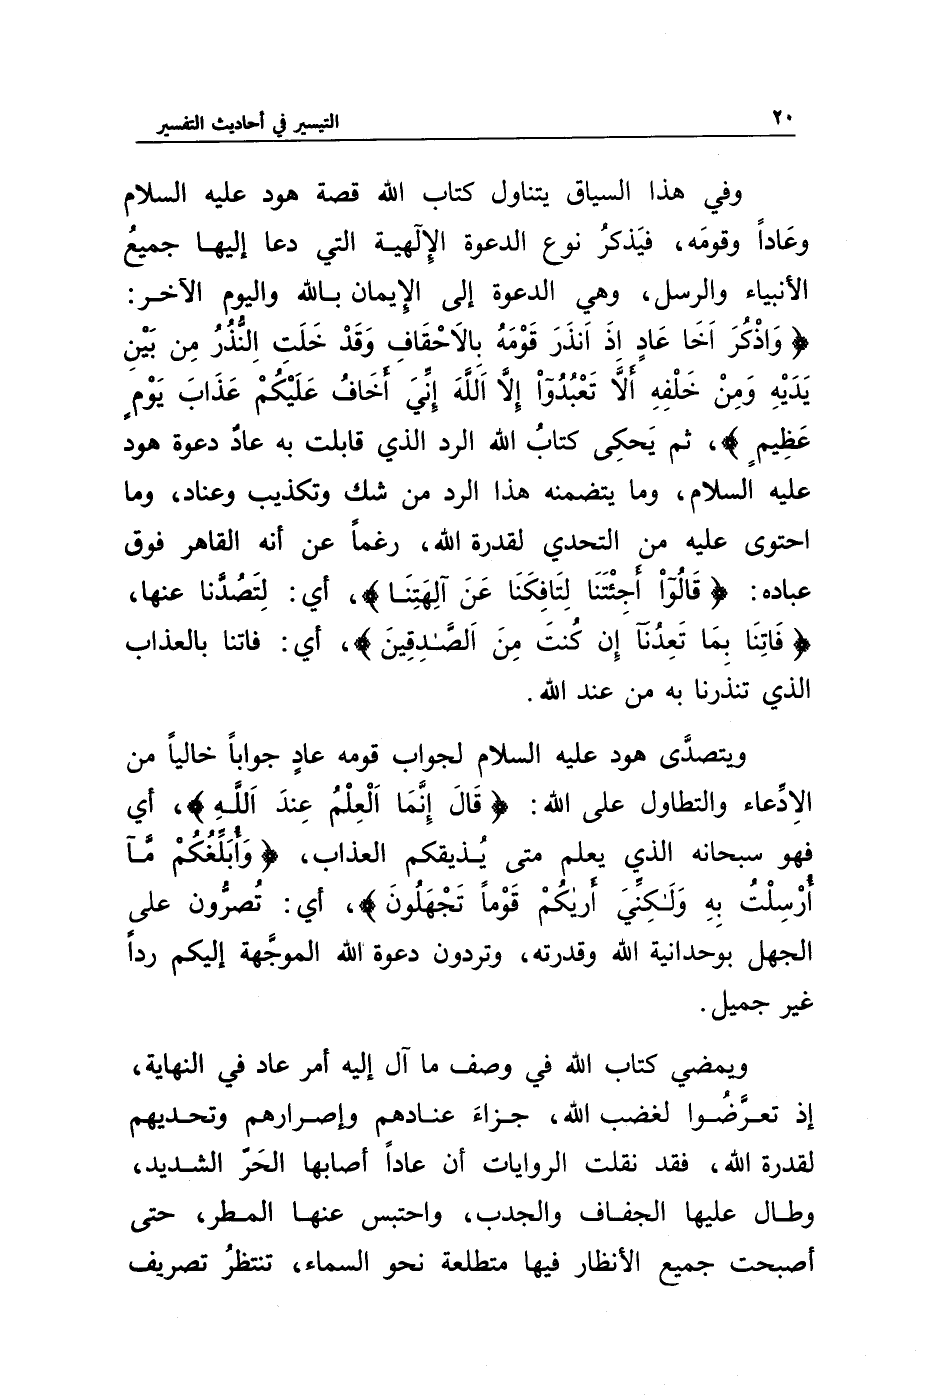 ٢٠
التيسير في أحاديث التفسير
وفي هذا السياق يتناول كتاب الله قصة هود عليه السلام
وعَاداً وقومَه، فيَذكرُ نوع الدعوة الإلٓهية التي دعا إليها جميعُ
الأنبياء والرسل، وهي الدعوة إلى الإيمان بالله واليوم الآخر:
﴿ وَاذْكُرَ اَخَا عَادٍ اِذَ اَنذَرَ قَوْمَهُ بِالَاحْقَافِ وَقَدْ خَلَتِ النُّذُرُ مِن بَيْنِ
يَدَيْهِ وَمِنْ خَلْفِهِ أَلَّا تَعْبُدُوٓاْ إِلَّا اَللَّهَ إِنِّيَ أَخَافُ عَلَيْكُمْ عَذَابَ يَوْمٍ
عَظِيمٍ ﴾، ثم يَحكِى كتابُ الله الرد الذي قابلت به عادٌ دعوة هود
عليه السلام، وما يتضمنه هذا الرد من شك وتكذيب وعناد، وما
احتوى عليه من التحدي لقدرة الله، رغماً عن أنه القاهر فوق
عباده: ﴿ قَالُوٓاْ أَجِئْتَنَا لِتَافِكَنَا عَنَ آلِهَتِنَا ﴾، أي: لِتَصُدَّنا عنها،
﴿ فَاتِنَا بِمَا تَعِدُنَآ إِن كُنتَ مِنَ اَلصَّـٰدِقِينَ ﴾، أي: فاتنا بالعذاب
الذي تنذرنا به من عند الله.
ويتصدَّى هود عليه السلام لجواب قومه عادٍ جواباً خالياً من
الاِدِّعاء والتطاول على الله: ﴿ قَالَ إِنَّمَا اَلْعِلْمُ عِندَ اَللَّهِ ﴾، أي
فهو سبحانه الذي يعلم متى يُذيقكم العذاب، ﴿ وَأُبَلِّغُكُمْ مَّآ
أُرْسِلْتُ بِهِ وَلَـٰكِنِّيَ أَرٰيكُمْ قَوْماً تَجْهَلُونَ ﴾، أي: تُصرُّون على
الجهل بوحدانية الله وقدرته، وتردون دعوة الله الموجَّهة إليكم رداً
غير جميل.
ويمضي كتاب الله في وصف ما آل إليه أمر عاد في النهاية،
إذ تعرَّضُوا لغضب الله، جزاءَ عنادهم وإصرارهم وتحديهم
لقدرة الله، فقد نقلت الروايات أن عاداً أصابها الحَرّ الشديد،
وطال عليها الجفاف والجدب، واحتبس عنها المطر، حتى
أصبحت جميع الأنظار فيها متطلعة نحو السماء، تنتظرُ تصريف